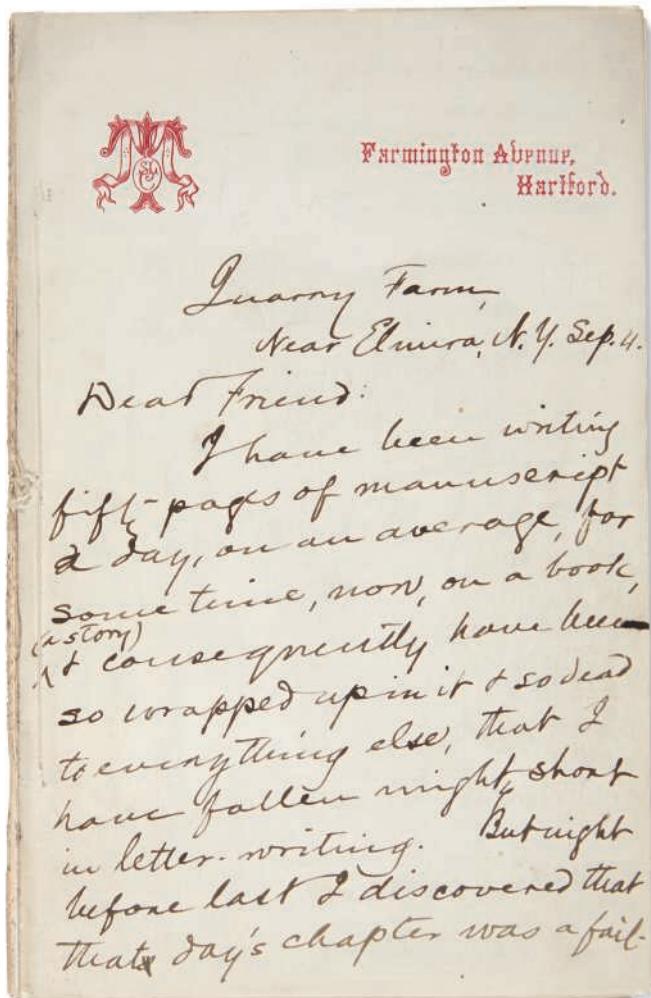 SLC
Farmington Avenue,
Hartford.
Quarry Farm,
Near Elmira, N.Y. Sep. 4.
Dear Friend:
I have been writing
fifty pages of manuscript
a day, on an average, for
some time, now, on a book,
(a story)
& consequently have been
so wrapped up in it & so dead
to everything else, that I
have fallen mighty short
in letter-writing. But night
before last I discovered that
that day's chapter was a fail-